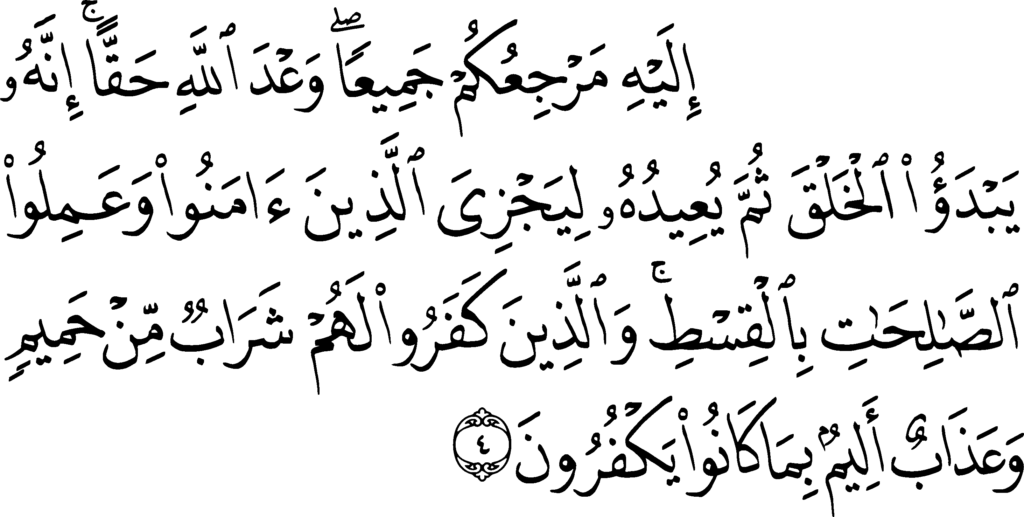 إِلَيْهِ مَرْجِعُكُمْ جَمِيعًا ۖ وَعْدَ ٱللَّهِ حَقًّا ۚ إِنَّهُۥ
يَبْدَؤُا۟ ٱلْخَلْقَ ثُمَّ يُعِيدُهُۥ لِيَجْزِىَ ٱلَّذِينَ ءَامَنُوا۟ وَعَمِلُوا۟
ٱلصَّـٰلِحَـٰتِ بِٱلْقِسْطِ ۚ وَٱلَّذِينَ كَفَرُوا۟ لَهُمْ شَرَابٌ مِّنْ حَمِيمٍ
وَعَذَابٌ أَلِيمٌۢ بِمَا كَانُوا۟ يَكْفُرُونَ ٤